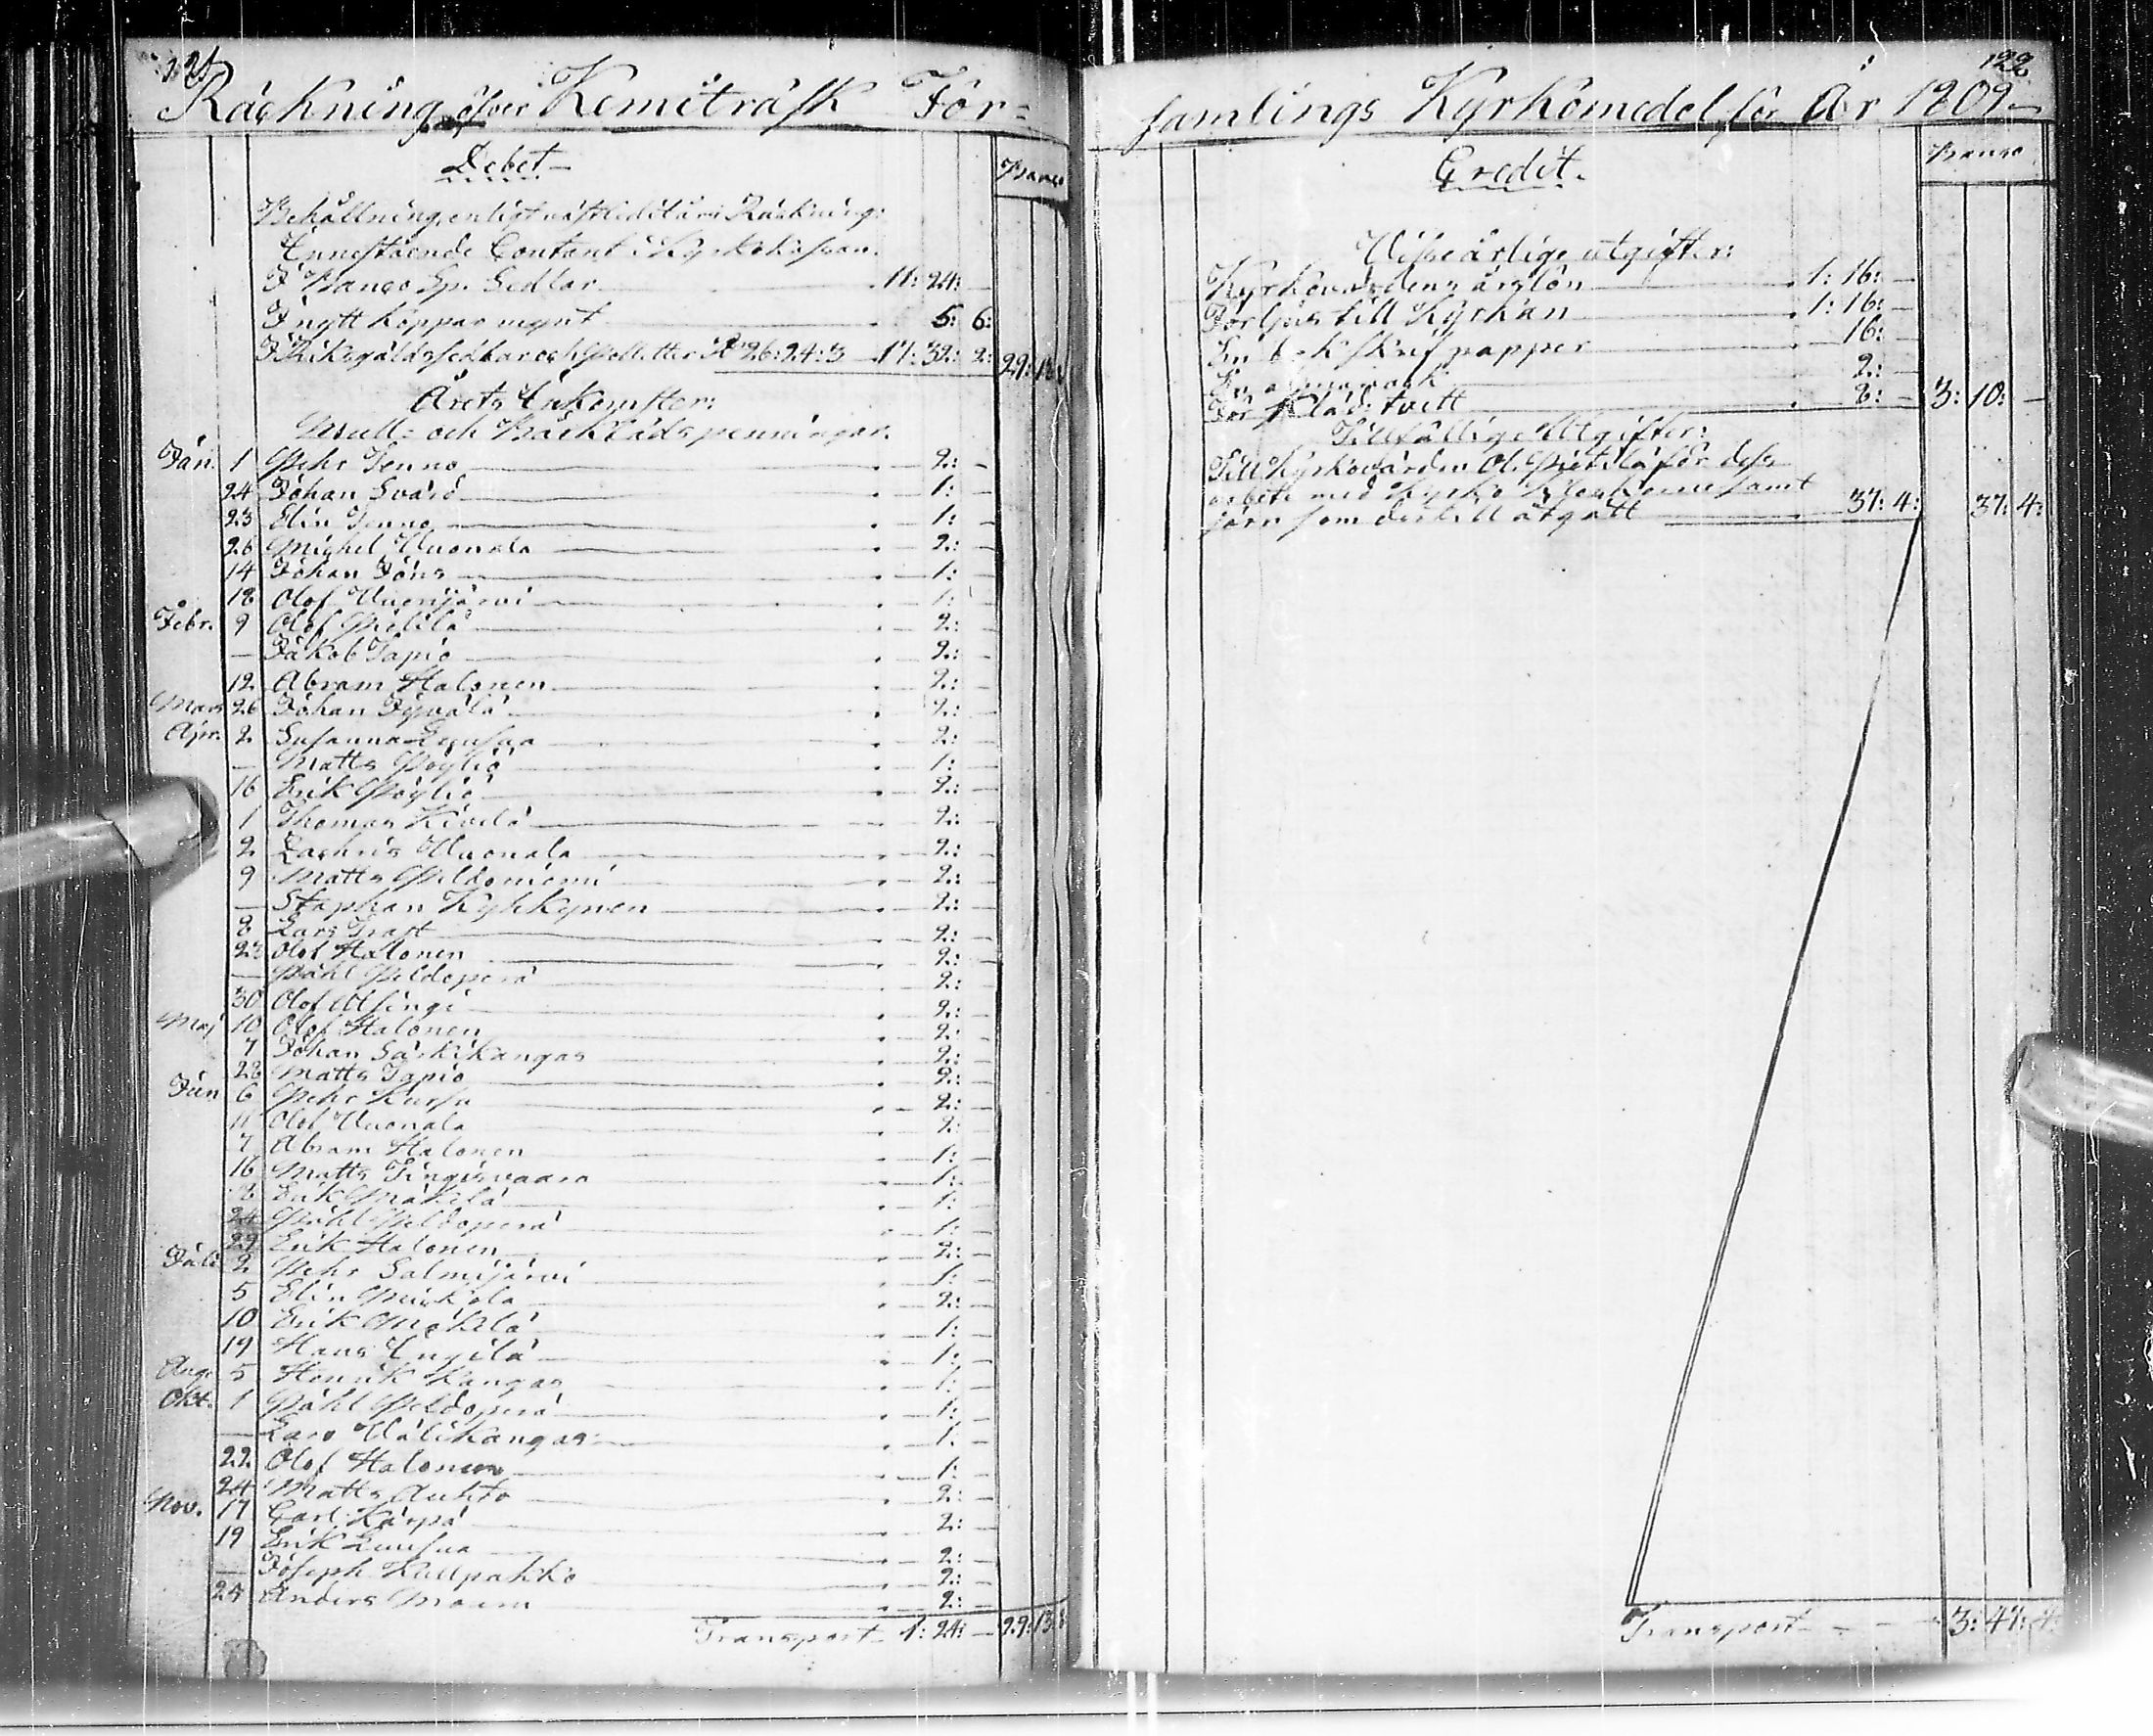 121
Räckning öfver Kemiträsk För=
Debet
Banco
Behållning enligt nästledit års Räckning:
Innestående Contant i Kyrkokassan.
I Banco Sp. Sedlar 11: 24: —
I nytt koppar mynt 5: 6:
I Riksgäldssedlar och Polletter Rd 26: 24: 3 17: 32: 2: 29: 13:
Årets Inkomster:
Mull- och Bårklädspenningar.
Jan. 1 Pehr Tenno 2: —
24 Johan Svärd 1: —
23 Elin Tenno 1: —
26 Michel Vuonala 2: —
14 Johan Jöns 1: —
18 Olof Vuenijärvi 1: —
Febr. 9 Olof Pietilä 2: —
— Jakob Tapio 2: —
12 Abram Halonen 2: —
Mars 26 Johan Jyvälä 2: —
Apr. 2 Susanna Luusua 2: —
— Matts Pöyliö 1: —
16 Erik Pöyliö 2: —
1 Thomas Kivelä 2: —
2 Zachris Vuonala 2: —
9 Matts Peldoniemi 2: —
— Staphan Kyhkynen 2: —
8 Lars Trast 2: —
23 Olof Halonen 2: —
— Påhl Peldoperä 2: —
30 Olof Alsingi 2: —
Maj 10 Olof Halonen 2: —
7 Johan Särkikangas 2: —
28 Matts Tapio 2: —
Jun 6 Pehr Kursu 2: —
11 Olof Vuonala 2: —
7 Abram Halonen 1: —
16 Matts Tingisvaara 1: —
8 Erik Mäkelä 1: —
24 Påhl Peldoperä 1: —
29 Erik Halonen 2: —
Juli 2 Pehr Salmijärvi 1: —
5 Elin 2: —
10 Erik Mäkelä 1: —
19 Hans Ingilä 1: —
Aug. 5 Henrik Kangas 1: —
Okt. 1 Påhl Peldoperä 1: —
— Lars Välikangas 1: —
22 Olof Halonen 1: —
24 Matts Auhto 2: —
Nov. 17 Carl Kärpä 2: —
19 Erik Luusua 2: —
— Joseph Kullpakko 2: —
24 Anders 2: —
Transport 1: 24: — 29: 13:
122
samlings Kyrkomedel för År 1809
Credit.
Banco
Visse årlige utgifter:
Kyrkovärdens årslön 1: 16: —
För ljus till Kyrkan 1: 16: —
En bok skrifpapper 16: —
En almanack 2: —
För Klädstvätt 8: — 3: 10: —
Tillfällige Utgifter:
Till Kyrkovärden Ol. Pietilä för dess
arbete med Kyrko Klockorne samt
järn som dertill åtgått 37: 4: 37: 4:
Transport 3: 47: 4: